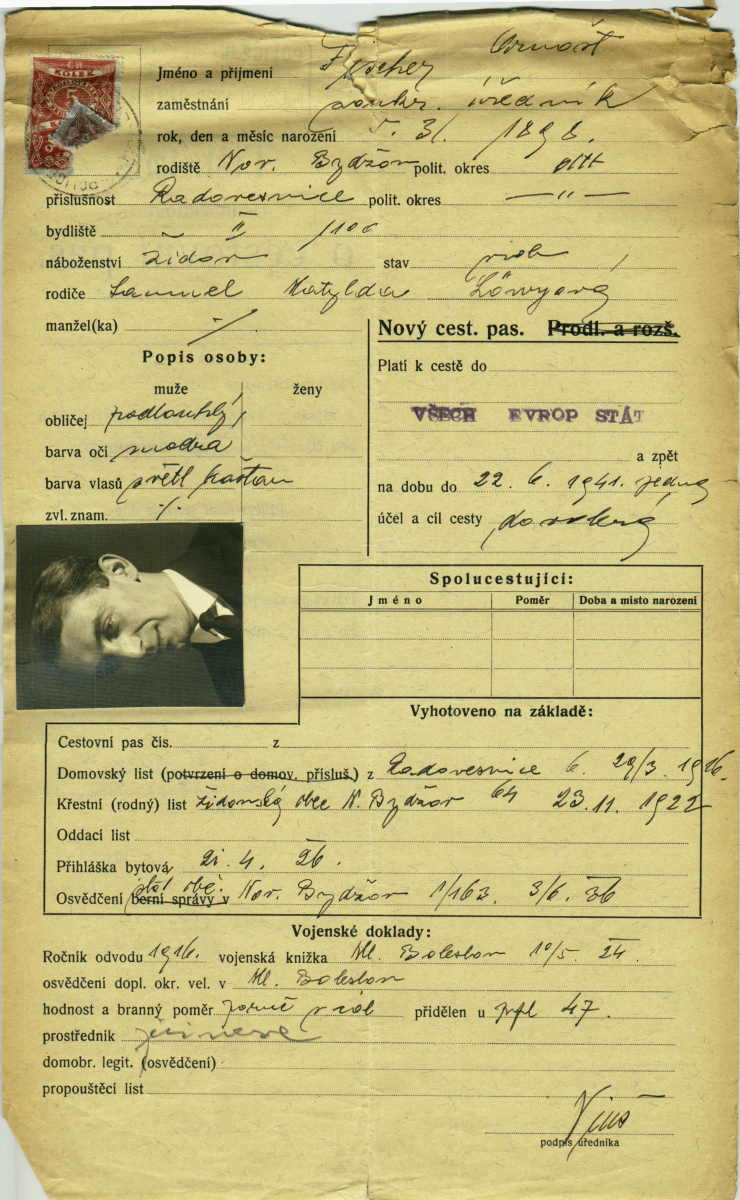 KOLEK
Jméno a přijmení Fischer Arnošt
zaměstnání soukr. úředník
rok, den a měsíc narození 5. 3. 1898.
rodiště Nov. Bydžov polit. okres
příslušnost Radovesnice polit. okres — " —
bydliště II /100
náboženství židov stav
rodiče Samuel Matylda Löwyová
manžel(ka) ./.
Popis osoby:
muže ženy
obličej podlouhlý
barva očí modrá
barva vlasů světl kaštan
zvl. znam. ./.
Nový cest. pas. Prodl. a rozš.
Platí k cestě do
VŠECH EVROP STÁT
a zpět
na dobu do 22. 6. 1941.
účel a cíl cesty
Spolucestující:
Jméno Poměr Doba a místo narození
Vyhotoveno na základě:
Cestovní pas čís. z
Domovský list (potvrzení o domov. přísluš.) z Radovesnice 6. 29/3. 1916.
Křestní (rodný) list židovská obec N. Bydžov 64 23. 11. 1922
Oddací list
Přihláška bytová 21. 4. 26.
Osvědčení berní správy v Nov. Bydžov 1/163. 3/6. 36
Vojenské doklady:
Ročník odvodu 1916. vojenská knížka Ml. Boleslav 10/5. 24.
osvědčení dopl. okr. vel. v Ml. Boleslav
hodnost a branný poměr přidělen u 47.
prostředník
domobr. legit. (osvědčení)
propouštěcí list
podpis úředníka